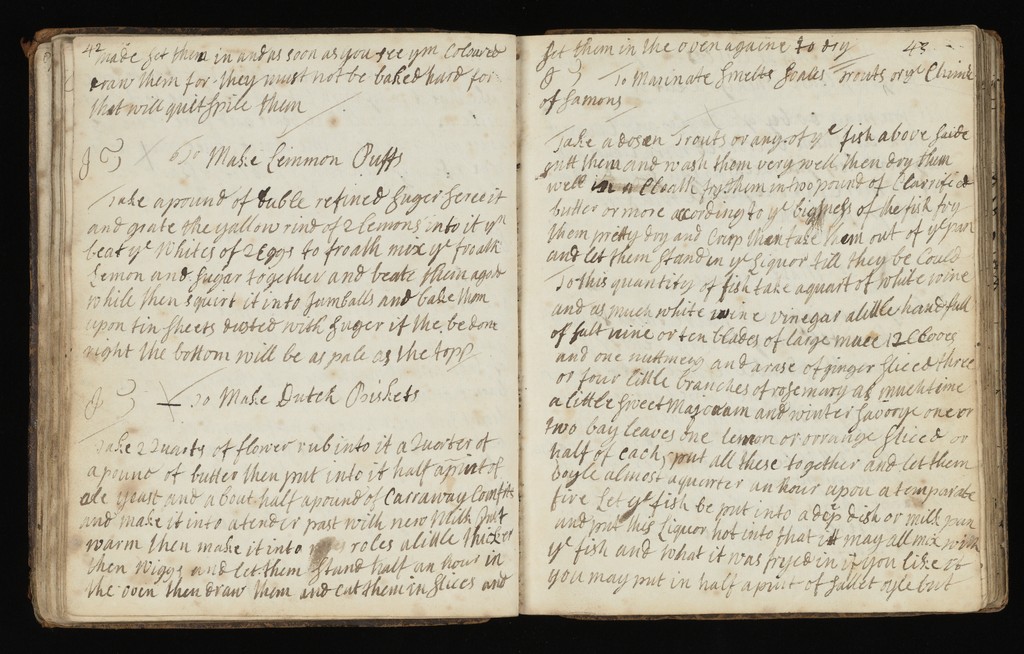 42
made set them in and as soon as you see ym Coloured
draw them for they must not be baked hard for
that will quit spile them
To Make Lemmon Puffs
Take a pound of duble refined suger serce it
and grate the yallow rind of 2 Lemons into it yn
beat ye Whites of 2 Eggs to froath mix ye froath
Lemon and sugar together and beate them a good
while then squirt it into Jumballs and bake them
upon tin sheets dusted with suger if the be done
right the bottom will be as pale as the topp
To Make Dutch Biskets
Take 2 Quarts of flower rub into it a Quarter of
a pound of butter then put into it half a pint of
ale yeast and about half a pound of Carraway Comfitts
and make it into a tender past with new Milk Just
warm then make it into roles a little thicker
then Wiggs and let them stand half an hour in
the oven then draw them and cut them in slices and
43
set them in the oven againe to dry
To Marinate Smelts Soales Trouts or ye
of Samons
Take a dosen Trouts or any of ye fish above saide
gutt them and wash them very well then dry them
well in a Cloath fry them in two pound of Clarrified
butter or more according to ye bigness of the fish fry
them pretty dry and Crisp then take them out of ye pan
and let them stand in ye liquor till they be Could
To this quantity of fish take a quart of white wine
and as much white wine vinegar a little hand full
of salt nine or ten blades of large mace 12 Cloves
and one nuttmeg and a rase of ginger sliced three
or four little branches of rosemary as much time
a little sweet Majoram and winter savorye one or
two bay leaves one lemon or orrange sliced or
half of each, put all these together and let them
boyle almost a quarter an hour upon a temparate
fire Let ye fish be put into a deep dish or milk pan
and put this Liquor hot into that it may all mix with
ye fish and what it was fryed in if you like it
you may put in half a pint of sallet oyle but